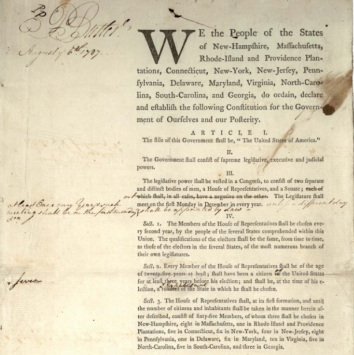 P. Butler
August 6th 1787.
WE the People of the States
of New-Hampshire, Massachusetts,
Rhode-Island and Providence Plan-
tations, Connecticut, New-York, New-Jersey, Penn-
sylvania, Delaware, Maryland, Virginia, North-Caro-
lina, South-Carolina, and Georgia, do ordain, declare
and establish the following Constitution for the Govern-
ment of Ourselves and our Posterity.
ARTICLE I.
The stile of this Government shall be, "The United States of America."
II.
The Government shall consist of supreme legislative, executive and judicial
powers.
III.
The legislative power shall be vested in a Congress, to consist of two separate
and distinct bodies of men, a House of Representatives, and a Senate; each of
which shall, in all cases, have a negative on the other. The Legislature shall
meet on the first Monday in December in every year.
IV.
Sect. 1. The Members of the House of Representatives shall be chosen every
second year, by the people of the several States comprehended within this
Union. The qualifications of the electors shall be the same, from time to time,
as those of the electors in the several States, of the most numerous branch of
their own legislatures.
Sect. 2. Every Member of the House of Representatives shall be of the age
of twenty-five years at least; shall have been a citizen of the United States
for at least three years before his election; and shall be, at the time of his
election, a resident of the State in which he shall be chosen.
Sect. 3. The House of Representatives shall, at its first formation, and until
the number of citizens and inhabitants shall be taken in the manner herein af-
ter described, consist of sixty-five Members, of whom three shall be chosen in
New-Hampshire, eight in Massachusetts, one in Rhode-Island and Providence
Plantations, five in Connecticut, six in New-York, four in New-Jersey, eight
in Pennsylvania, one in Delaware, six in Maryland, ten in Virginia, five in
North-Carolina, five in South-Carolina, and three in Georgia.